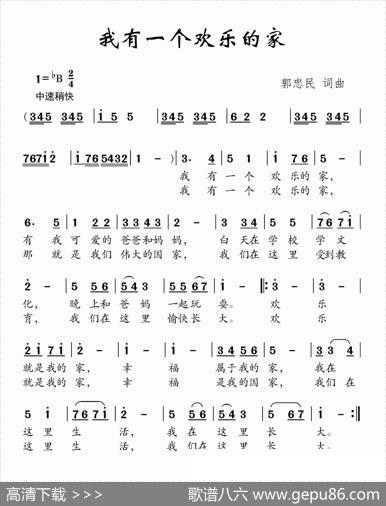 我有一个欢乐的家
1=♭B 2/4
郭忠民 词曲
中速稍快
(345 345 | i 5 5 | 345 345 | 345 345 | 6 2 2 | 345 345 |
767i2 | i765432 | 1 - | 1 - ) | 3· 4 | 5 1 | i 76 | 5 - |
我 有 一 个 欢 乐的 家,
我 有 一 个 欢 乐的 家,
6· 5 | 1 2 2 | 3 3 4 3 | 2 - | 3 3 4 | 5 5 | 7 6 7 i |
有 我 可 爱的 爸爸和妈 妈, 白 天在 学 校 学 文
那 就 是 我们 伟大的国 家, 我 们在 这 里 受到教
2 - | 5 5 5 | 3 5 6 | 5 5 6 7 | i - | i :| 3 | 2 |
化, 晚 上和 爸 妈 一起玩 耍。 欢 乐
育, 我 们在 这 里 愉快长 大。 欢 乐
2 i 7 i | 2 - | i - | i - | 3 4 5 6 | 5 - | 3 3 3 |
就是我的 家, 幸 福 属于我的 家, 我在
就是我的 家, 幸 福 是我的国 家, 我们 在
5 i | 7 6 7 i | 2 - | 2 - | 5 5 6 | 5 6 7 | i - | i 0 |
这 里 生 活, 我 在 这 里 长 大。
这 里 生 活, 我 们在 这 里 长 大。
高清下载 >>>
歌谱八六 www.gepu86.com